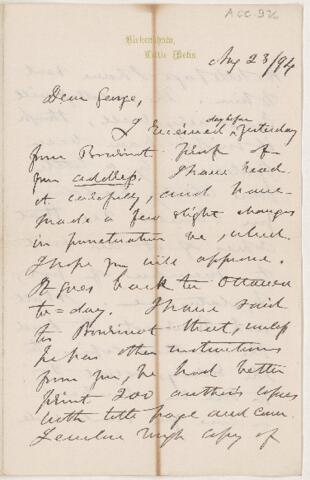 Acc. 926
Birkenshaw,
Little Metis.
Aug 23/94
Dear George,
day before
I received yesterday
from Bourinot proof of
your address. I have read
it carefully, and have
made a few slight changes
in punctuation &c, which
I hope you will approve.
It goes back to Ottawa
to=day. I have said
to Bourinot that, unless
he has other instructions
from you, he had better
print 200 author's copies
with title page and cover.
I enclose rough copy of